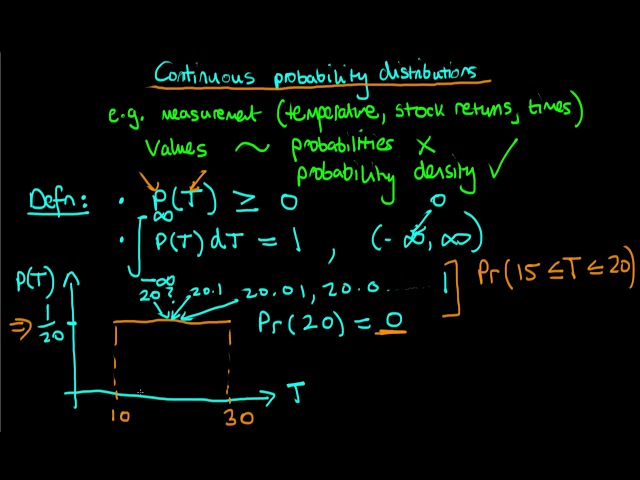 Continuous probability distributions
e.g. measurement (temperature, stock returns, times)
Values ~ probabilities ×
probability density ✓
Defn: · P(T) ≥ 0
· ∫_{-∞}^{∞} P(T) dT = 1 , (-∞, ∞)
0
P(T)
20? 20.1 20.01, 20.0.......1
Pr(15 ≤ T ≤ 20)
⇒ 1/20
Pr(20) = 0
T
10 30